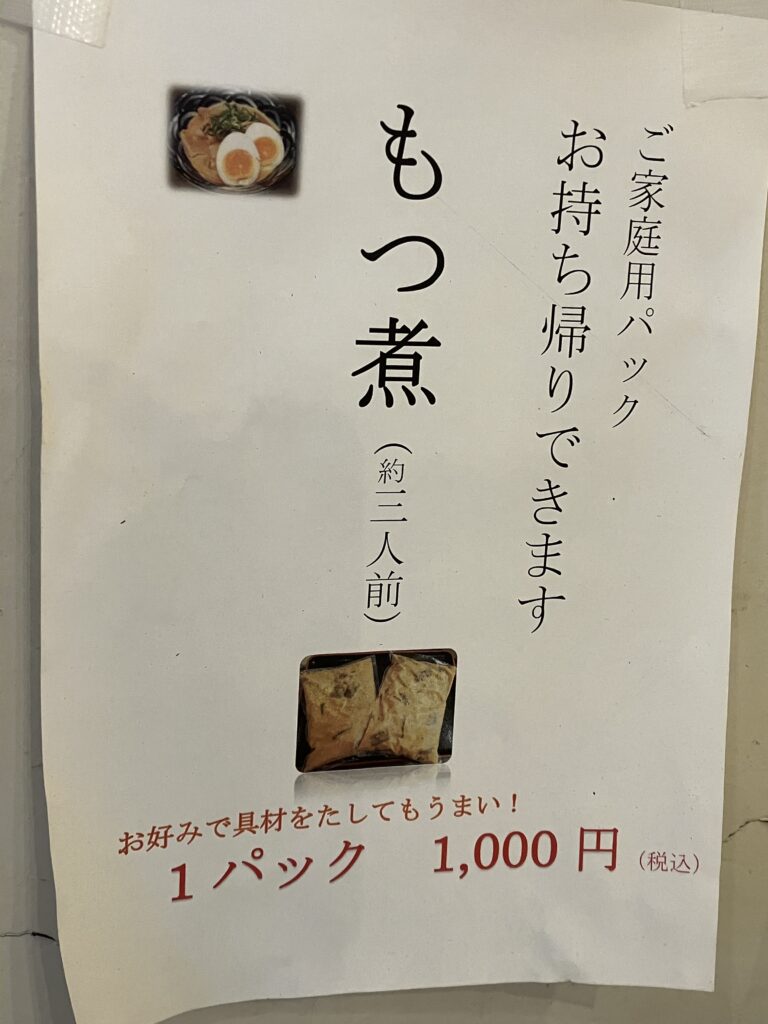 ご家庭用パック
お持ち帰りできます
もつ煮（約三人前）
お好みで具材をたしてもうまい！
1パック　1,000円（税込）